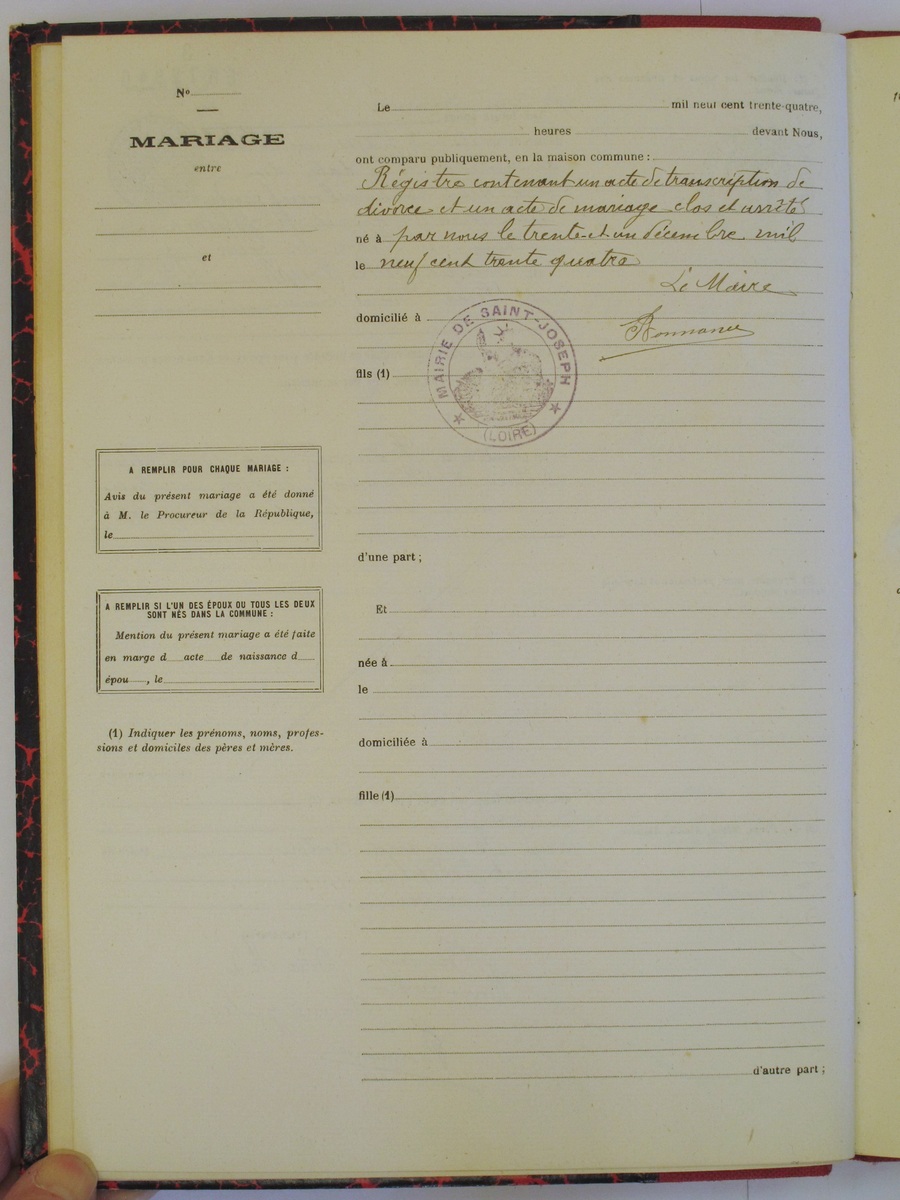 No
MARIAGE
entre
et
A REMPLIR POUR CHAQUE MARIAGE :
Avis du présent mariage a été donné
à M. le Procureur de la République,
le
A REMPLIR SI L'UN DES ÉPOUX OU TOUS LES DEUX
SONT NÉS DANS LA COMMUNE :
Mention du présent mariage a été faite
en marge d acte de naissance d
épou , le
(1) Indiquer les prénoms, noms, profes-
sions et domiciles des pères et mères.
Le mil neuf cent trente-quatre,
heures devant Nous,
ont comparu publiquement, en la maison commune :
Régistre contenant un acte de transcription de
divorce et un acte de mariage clos et arrêté
né à par nous le trente-et un décembre mil
le neuf cent trente quatre
Le Maire
domicilié à
MAIRIE DE SAINT-JOSEPH
(LOIRE)
fils (1)
d'une part ;
Et
née à
le
domiciliée à
fille (1)
d'autre part ;